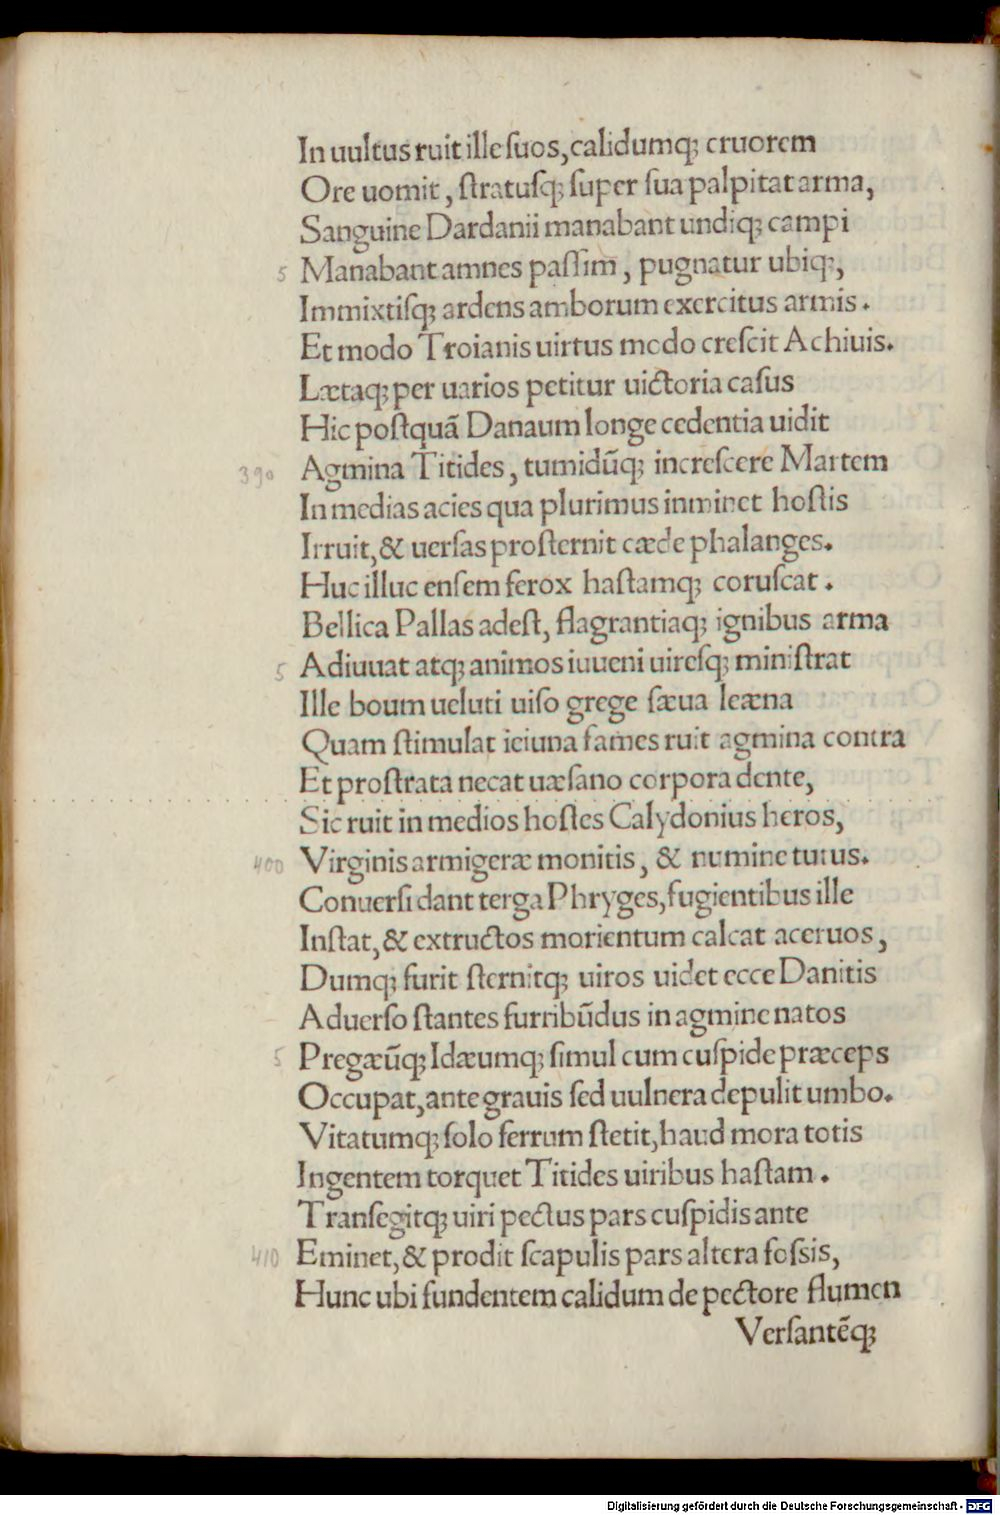 In uultus ruit ille ſuos, calidumq; cruorem
Ore uomit, ſtratuſq; ſuper ſua palpitat arma,
Sanguine Dardanii manabant undiq; campi
5 Manabant amnes paſſim, pugnatur ubiq;,
Immixtiſq; ardens amborum exercitus armis.
Et modo Troianis uirtus modo creſcit Achiuis.
Lætaq; per uarios petitur uictoria caſus
Hic poſtquã Danaum longe cedentia uidit
390 Agmina Titides, tumidũq; increſcere Martem
In medias acies qua plurimus inminet hoſtis
Irruit, & uerſas proſternit cæde phalanges.
Huc illuc enſem ferox haſtamq; coruſcat.
Bellica Pallas adeſt, flagrantiaq; ignibus arma
5 Adiuuat atq; animos iuueni uireſq; miniſtrat
Ille boum ueluti uiſo grege ſæua leæna
Quam ſtimulat ieiuna fames ruit agmina contra
Et proſtrata necat uæſano corpora dente,
Sic ruit in medios hoſtes Calydonius heros,
400 Virginis armigeræ monitis, & numine tutus.
Conuerſi dant terga Phryges, fugientibus ille
Inſtat, & extructos morientum calcat aceruos,
Dumq; furit ſternitq; uiros uidet ecce Danitis
Aduerſo ſtantes furribũdus in agmine natos
5 Pregæũq; Idæumq; ſimul cum cuſpide præceps
Occupat, ante grauis ſed uulnera depulit umbo.
Vitatumq; ſolo ferrum ſtetit, haud mora totis
Ingentem torquet Titides uiribus haſtam.
Tranſegitq; uiri pectus pars cuſpidis ante
410 Eminet, & prodit ſcapulis pars altera foſsis,
Hunc ubi fundentem calidum de pectore flumen
Verſantẽq;
Digitalisierung gefördert durch die Deutsche Forschungsgemeinschaft - DFG